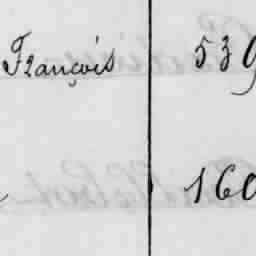 François 539
160